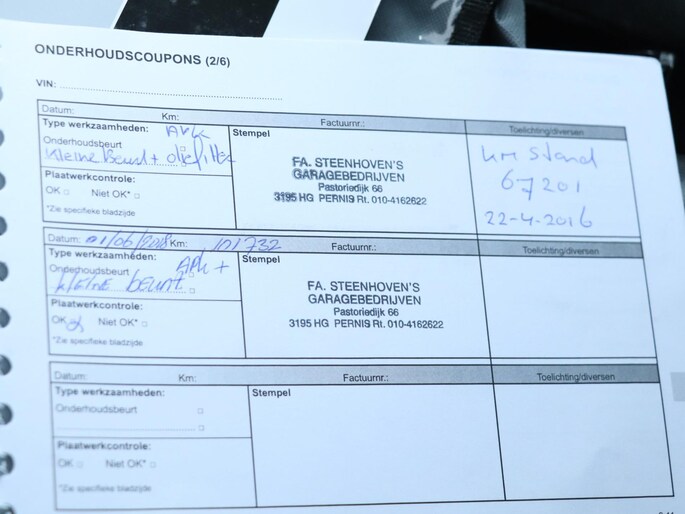 ONDERHOUDSCOUPONS (2/6)
VIN:
Datum: Km: Factuurnr.: Toelichting/diversen
Type werkzaamheden: Stempel
Onderhoudsbeurt
Kleine Beurt + oliefilter
Plaatwerkcontrole:
OK Niet OK*
*Zie specifieke bladzijde
FA. STEENHOVEN'S
GARAGEBEDRIJVEN
Pastoriedijk 66
3195 HG PERNIS Rt. 010-4162622
km stand
67201
22-4-2016
Datum: 01/06/2018 Km: 101732 Factuurnr.: Toelichting/diversen
Type werkzaamheden: APK + Stempel
Onderhoudsbeurt
kleine beurt
Plaatwerkcontrole:
OK Niet OK*
*Zie specifieke bladzijde
FA. STEENHOVEN'S
GARAGEBEDRIJVEN
Pastoriedijk 66
3195 HG PERNIS Rt. 010-4162622
Datum: Km: Factuurnr.: Toelichting/diversen
Type werkzaamheden: Stempel
Onderhoudsbeurt
Plaatwerkcontrole:
OK Niet OK*
*Zie specifieke bladzijde